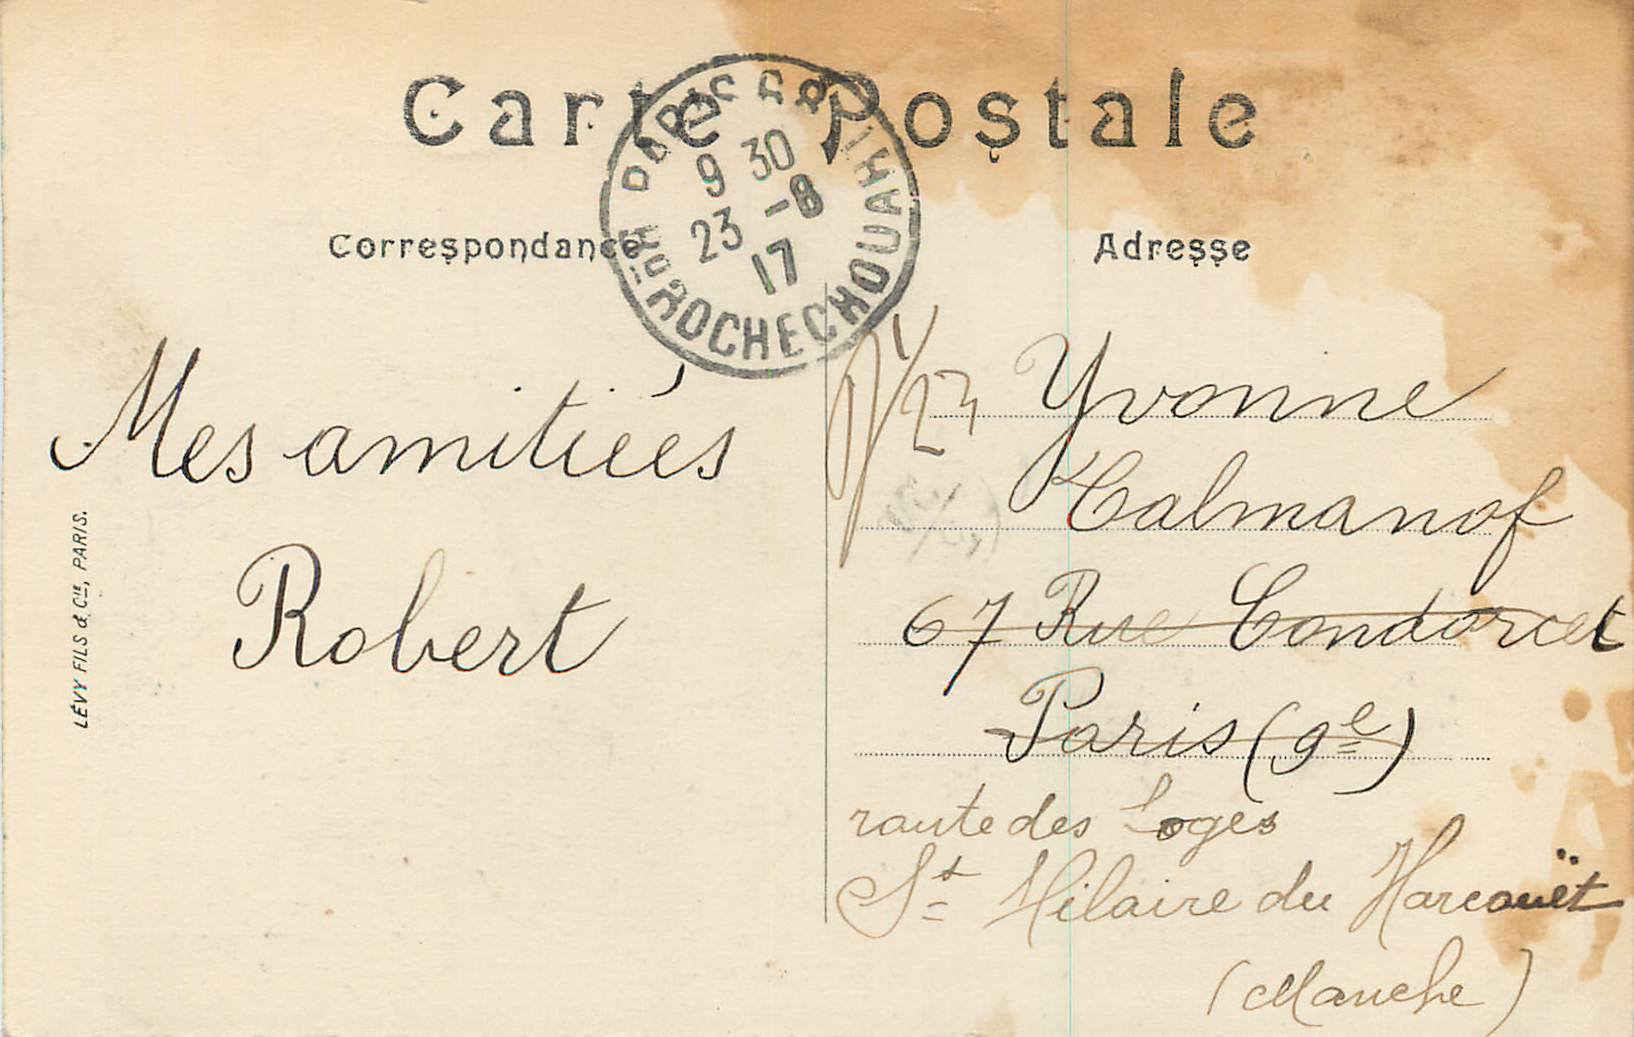 Carte Postale
Correspondance
Adresse
9 30
23 -8
17
ROCHECHOUART
Mes amitiées
Robert
LÉVY FILS & Cie, PARIS.
Yvonne
Calmanof
67 Rue Condorcet
Paris (9e)
route des Loges
St Hilaire du Harcouët
(Manche)